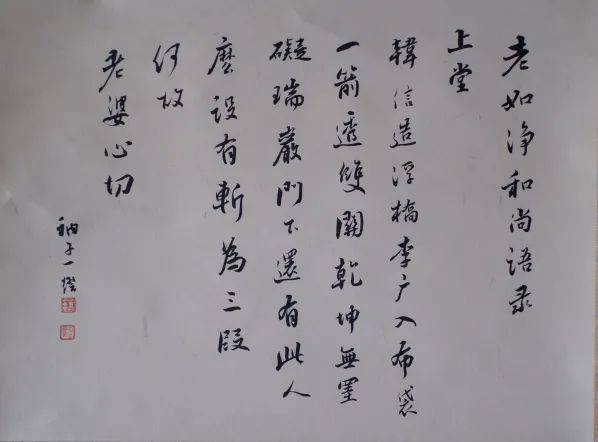 老如净和尚语录
上堂
韓信造浮橋李广入布袋
一箭透雙關乾坤無罣
礙瑞巖門下還有此人
麽设有斬為三段
何故
老婆心切
衲子一澄